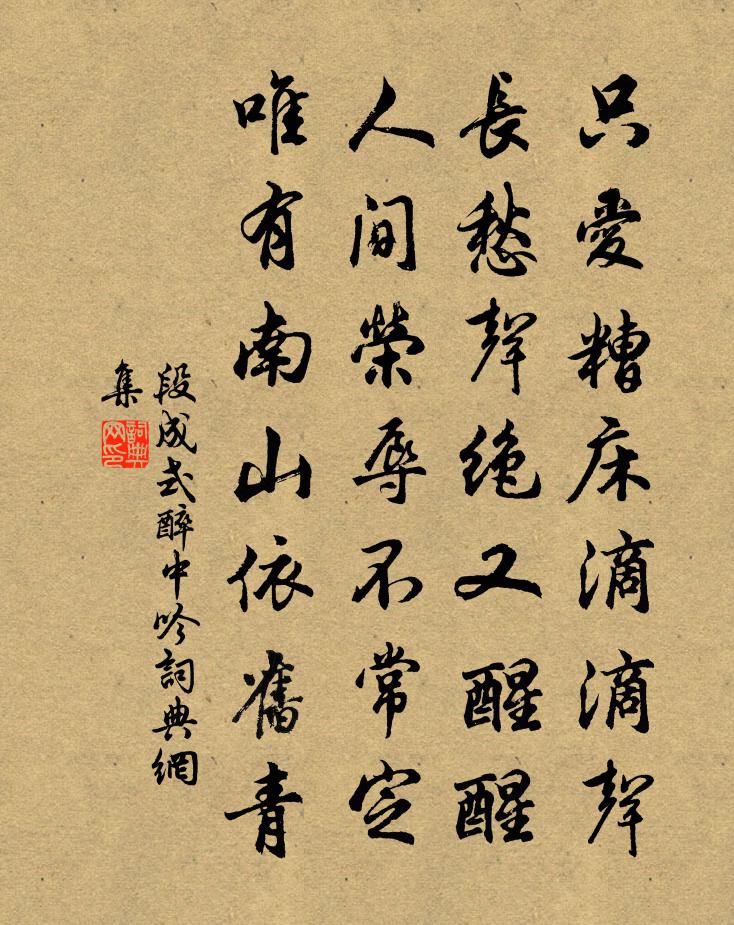 只愛糟床滴滴聲
長愁聲絕又醒醒
人間榮辱不常定
唯有南山依舊青
段成式醉中吟詞典網
集
詞典
网印